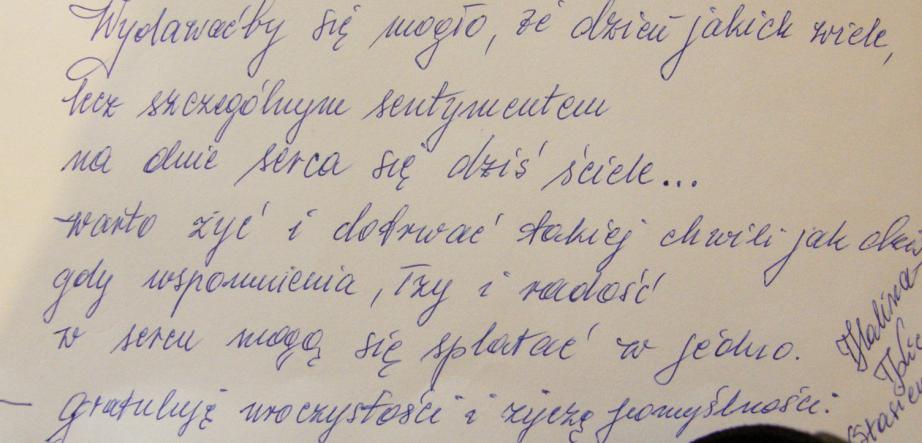 Wydawaćby się mogło, że dzień jakich wiele,
lecz szczególnym sentymentem
na dnie serca się dziś ściele...
warto żyć i dotrwać takiej chwili jak
gdy wspomnienia, łzy i radość
w sercu mogą się splatać w jedno.
– gratuluję uroczystości i życzę pomyślności.
Halina